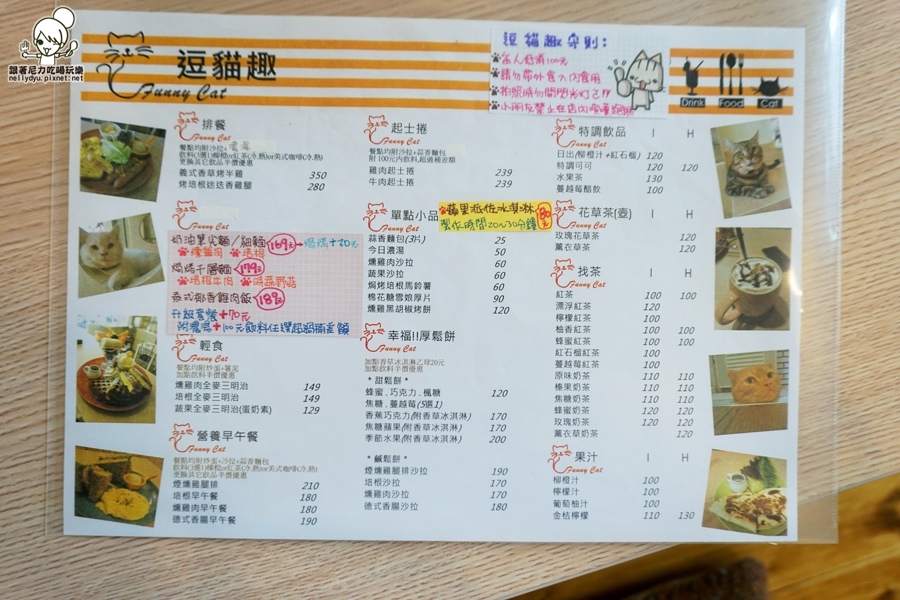 跟著尼力吃喝玩樂
nellydyu.pixnet.net
逗貓趣
Funny Cat
逗貓趣守則:
每人低消100元
請勿帶外食入內食用
拍照時勿開閃光灯!!
小朋友禁止在店內
Drink
Food
Cat
排餐
Funny Cat
餐點均附沙拉+
飲料(3選1)檸檬or紅茶(冷,熱)or美式咖啡(冷,熱)
更換其它飲品半價優惠
義式香草烤半雞 350
烤培根迷迭香雞腿 280
Funny Cat
奶油筆尖麵/細麵 169元 →焗烤+20元
燻雞肉 培根
焗烤千層麵 179元
培根牛肉 時蔬野菇
泰式椰香雞肉飯 189元
升級套餐+70元
附濃湯+100元飲料任選超過補差額
輕食
Funny Cat
餐點均附炒蛋+薯泥
加點飲料半價優惠
燻雞肉全麥三明治 149
培根全麥三明治 149
蔬果全麥三明治(蛋奶素) 129
營養早午餐
Funny Cat
餐點均附炒蛋+沙拉+蒜香麵包
飲料(3選1)檸檬or紅茶(冷,熱)or美式咖啡(冷,熱)
更換其它飲品半價優惠
煙燻雞腿排 210
培根早午餐 180
燻雞肉早午餐 180
德式香腸早午餐 190
起士捲
Funny Cat
餐點均附沙拉+蒜香麵包
附 100元內飲料,超過補差額
雞肉起士捲 239
牛肉起士捲 239
單點小品
Funny Cat
蘋果派佐冰淇淋 180元
製作時間20~30分鐘
蒜香麵包(3片) 25
今日濃湯 50
燻雞肉沙拉 60
蔬果沙拉 60
焗烤培根馬鈴薯 60
棉花糖雪娘厚片 90
燻雞黑胡椒烤餅 120
幸福!!厚鬆餅
Funny Cat
加點香草冰淇淋乙球20元
加點飲料半價優惠
*甜鬆餅*
蜂蜜、巧克力、楓糖 120
焦糖、蔓越莓(5選1)
香蕉巧克力(附香草冰淇淋) 170
焦糖蘋果(附香草冰淇淋) 170
季節水果(附香草冰淇淋) 200
*鹹鬆餅*
煙燻雞腿排沙拉 190
培根沙拉 170
燻雞肉沙拉 170
德式香腸沙拉 180
特調飲品 I H
Funny Cat
日出(柳橙汁+紅石榴) 120
特調可可 120 120
水果茶 130
蔓越莓醋飲 100
花草茶(壺) I H
Funny Cat
玫瑰花草茶 120
薰衣草茶 120
找茶 I H
Funny Cat
紅茶 100 100
漂浮紅茶 120
檸檬紅茶 100
柚香紅茶 100 100
蜂蜜紅茶 100 100
紅石榴紅茶 100
蔓越莓紅茶 100
原味奶茶 110 110
榛果奶茶 110 110
焦糖奶茶 110 110
蜂蜜奶茶 120 120
玫瑰奶茶 120 120
薰衣草奶茶 120
果汁 I H
Funny Cat
柳橙汁 100
檸檬汁 100
葡萄柚汁 100
金桔檸檬 110 130